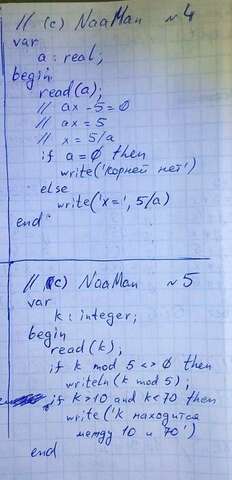 // (c) NaaMan ~4
var
a : real;
begin
read(a);
// ax - 5 = 0
// ax = 5
// x = 5/a
if a = 0 then
write('корней нет')
else
write('x=', 5/a)
end.
// (c) NaaMan ~5
var
k : integer;
begin
read(k);
if k mod 5 <> 0 then
writeln(k mod 5);
if k>10 and k<70 then
write('k находится
между 10 и 70')
end